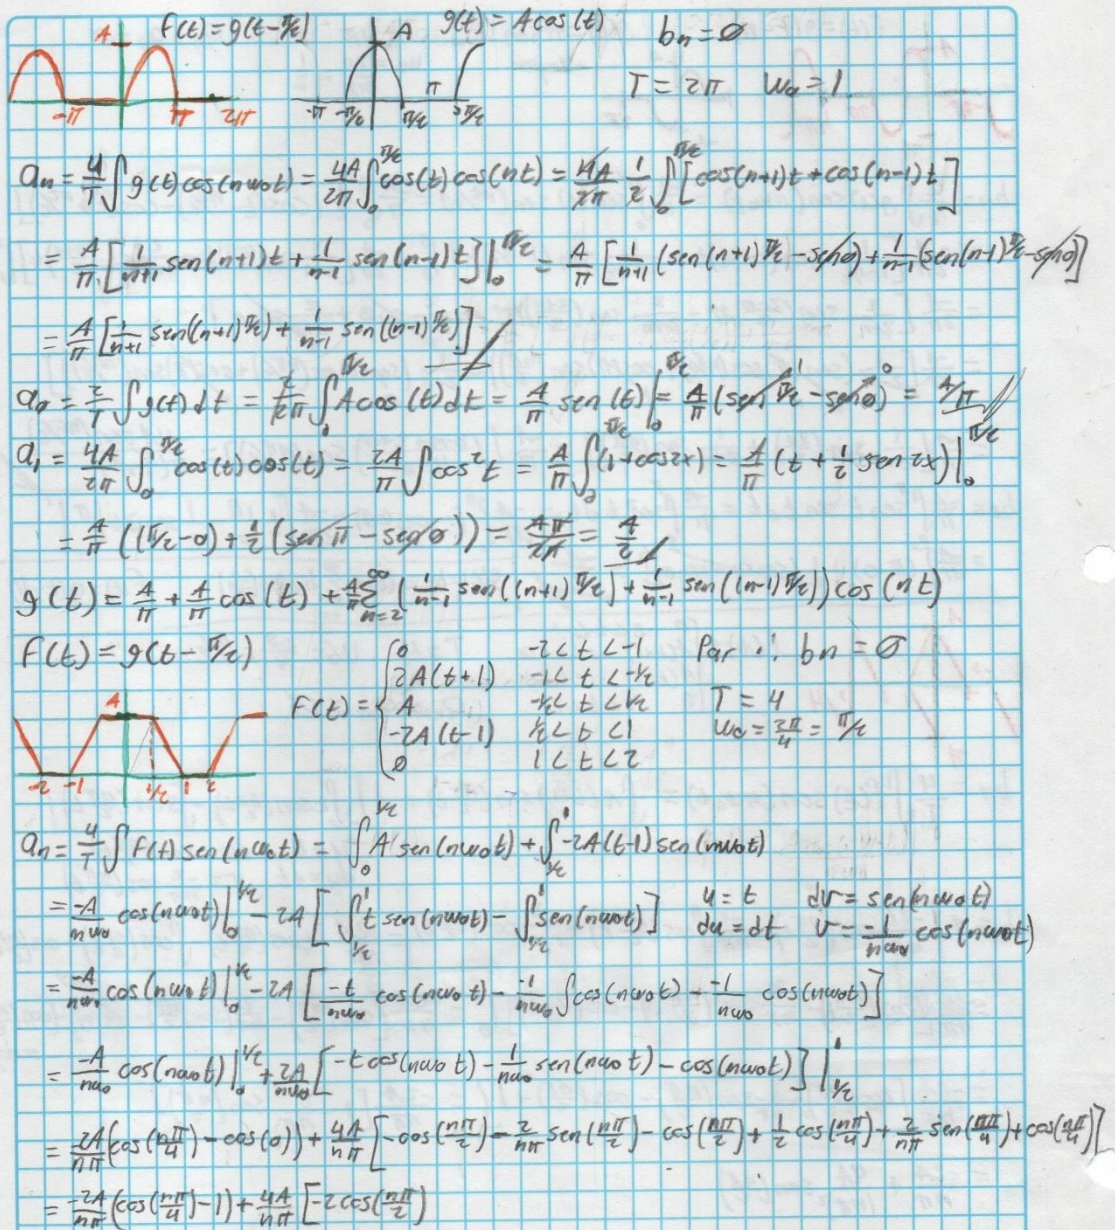 f(t) = g(t-π/2) A g(t) = A cos(t) bn = ø
A
-π π 2π -π -π/2 π/2 π 3π/2 T = 2π ω₀ = 1
an = 4/T ∫ g(t) cos(nω₀t) = 4A/2π ∫₀^π/2 cos(t) cos(nt) = 4A/2π 1/2 ∫₀^π/2 [cos(n+1)t + cos(n-1)t]
= A/π [1/n+1 sen(n+1)t + 1/n-1 sen(n-1)t] |₀^π/2 = A/π [1/n+1 (sen(n+1)π/2 - sen0) + 1/n-1 (sen(n-1)π/2 - sen0)]
= A/π [1/n+1 sen((n+1)π/2) + 1/n-1 sen((n-1)π/2)]
a₀ = 2/T ∫ g(t) dt = 2/2π ∫₀^π/2 A cos(t) dt = A/π sen(t) |₀^π/2 = A/π (sen π/2 - sen 0) = A/π
a₁ = 4A/2π ∫₀^π/2 cos(t) cos(t) = 2A/π ∫ cos²t = A/π ∫₀^π/2 (1+cos2x) = A/π (t + 1/2 sen 2x) |₀^π/2
= A/π ((π/2-0) + 1/2 (sen π - sen 0)) = Aπ/2π = A/2
g(t) = A/π + A/π cos(t) + A/π Σ_n=2^∞ (1/n-1 sen((n+1)π/2) + 1/n-1 sen((n-1)π/2)) cos(nt)
f(t) = g(t-π/2)
A
-2 -1 1/2 1 2
f(t) = { 0 -2<t<-1 Par ∴ bn = ø
2A(t+1) -1<t<-1/2
A -1/2<t<1/2 T = 4
-2A(t-1) 1/2<t<1 ω₀ = 2π/4 = π/2
0 1<t<2
an = 4/T ∫ f(t) sen(nω₀t) = ∫₀^1/2 A sen(nω₀t) + ∫_1/2^1 -2A(t-1) sen(nω₀t)
= -A/nω₀ cos(nω₀t) |₀^1/2 - 2A [∫_1/2^1 t sen(nω₀t) - ∫_1/2^1 sen(nω₀t)] u = t dv = sen(nω₀t)
du = dt v = -1/nω₀ cos(nω₀t)
= -A/nω₀ cos(nω₀t) |₀^1/2 - 2A [-t/nω₀ cos(nω₀t) - -1/nω₀ ∫ cos(nω₀t) - -1/nω₀ cos(nω₀t)]
= -A/nω₀ cos(nω₀t) |₀^1/2 + 2A/nω₀ [-t cos(nω₀t) - 1/nω₀ sen(nω₀t) - cos(nω₀t)] |_1/2^1
= -2A/nπ (cos(nπ/4) - cos(0)) + 4A/nπ [-cos(nπ/2) - 2/nπ sen(nπ/2) - cos(nπ/2) + 1/2 cos(nπ/4) + 2/nπ sen(nπ/4) + cos(nπ/4)]
= -2A/nπ (cos(nπ/4) - 1) + 4A/nπ [-2 cos(nπ/2)